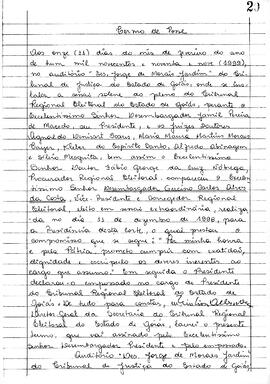 29
Termo de Posse
Aos onze (11) dias do mês de janeiro do ano
de hum mil novecentos e noventa e nove (1999),
no auditório "Des. Jorge de Morais Jardim" do Tri-
bunal de Justiça do Estado de Goiás, onde se
a sessão solene do pleno do Tribunal
Regional Eleitoral do Estado de Goiás, perante o
Excelentíssimo Senhor Desembargador Jamil Pereira
de Macedo, seu Presidente, e os Juízes Doutores
Arnaldo, Maria Moura Martins Moraes
Tayer, Kleber do Espírito Santo, Alfredo Abinagem
e Silvio Mesquita, bem assim o Excelentíssimo
Senhor Doutor Fábio George da Nóbrega,
Procurador Regional Eleitoral, compareceu o Excelen-
tíssimo Senhor Desembargador Carlos Alves
da Costa, Vice-Presidente e Corregedor Regional
Eleitoral, eleito em sessão extraordinária, realiza-
da no dia de dezembro de 1998, para
a Presidência desta Corte, o qual prestou o
compromisso que se segue: "Por minha honra
e pela Pátria, prometo cumprir com exatidão,
dignidade e escrúpulo os deveres inerentes ao
cargo que assumo". Em seguida o Presidente
declarou-o empossado no cargo de Presidente
do Tribunal Regional Eleitoral do Estado de
Goiás. De tudo para constar,
Diretor-Geral da Secretaria do Tribunal Regional
Eleitoral do Estado de Goiás, lavrei o presente
termo, que vai assinado pelo Excelentíssimo
Senhor Desembargador Presidente e pelo empossado.
Auditório "Des. Jorge de Moraes Jardim"
do Tribunal de Justiça do Estado de Goiás,